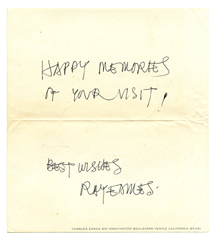 HAPPY MEMORIES
OF YOUR VISIT!
BEST WISHES
RAY EAMES.
CHARLES EAMES 901 WASHINGTON BOULEVARD VENICE CALIFORNIA 90291